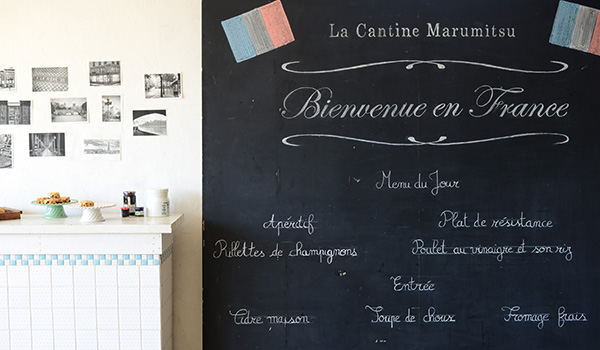 La Cantine Marumitsu
Bienvenue en France
Menu du Jour
Apéritif
Rillettes de champignons
Plat de résistance
Poulet au vinaigre et son riz
Entrée
Cidre maison
Soupe de choux
Fromage frais